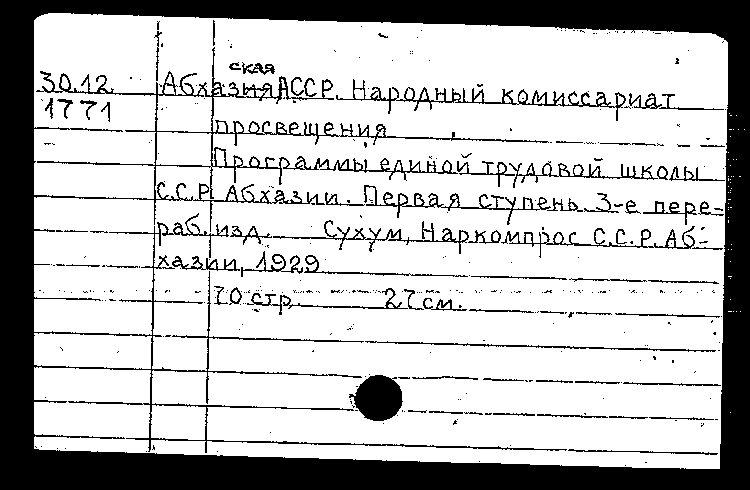 ская
30.12. Абхазия АССР. Народный комиссариат
1771 просвещения
Программы единой трудовой школы
С.С.Р. Абхазии. Первая ступень. 3-е пере-
раб. изд. Сухум, Наркомпрос С.С.Р. Аб-
хазии, 1929
70 стр. 27 см.